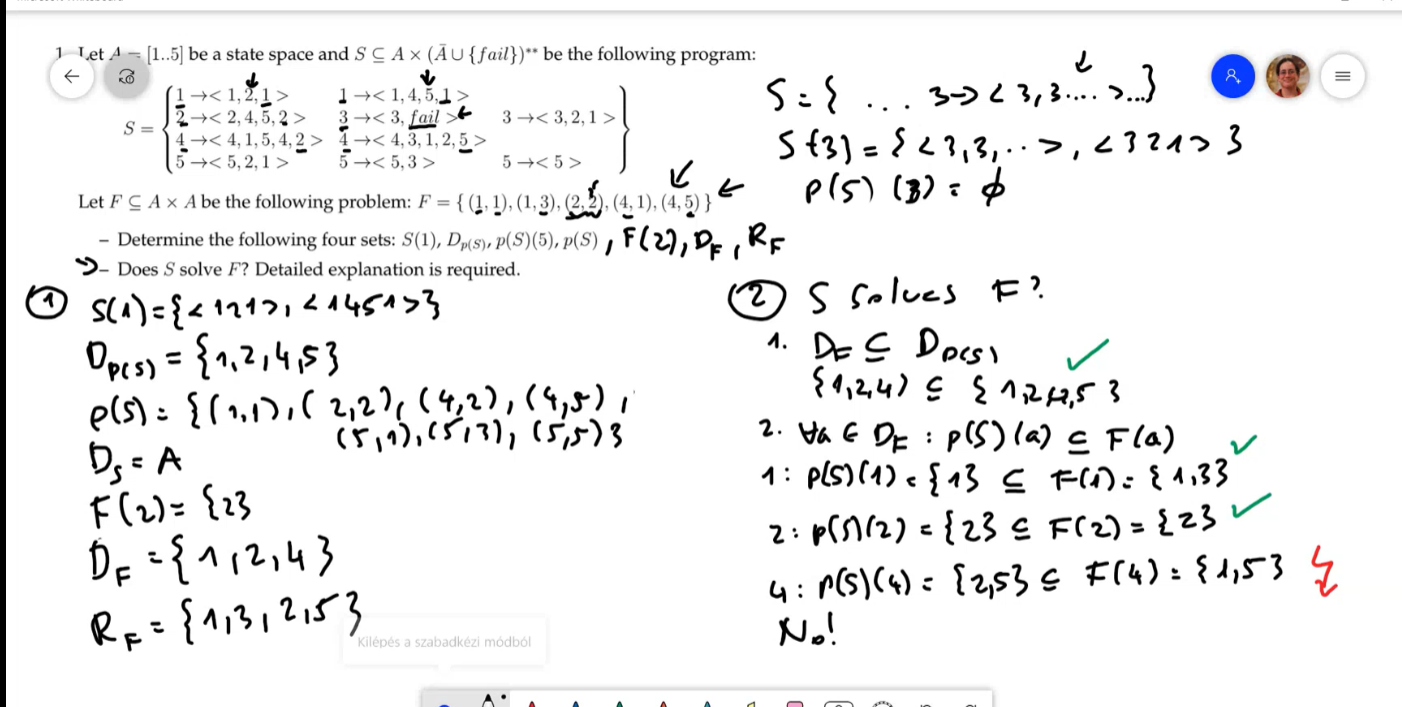 1. Let A = [1..5] be a state space and S ⊆ A × (Ā ∪ {fail})** be the following program:
S = { 1 →< 1, 2, 1 > 1 →< 1, 4, 5, 1 >
2 →< 2, 4, 5, 2 > 3 →< 3, fail > 3 →< 3, 2, 1 >
4 →< 4, 1, 5, 4, 2 > 4 →< 4, 3, 1, 2, 5 >
5 →< 5, 2, 1 > 5 →< 5, 3 > 5 →< 5 > }
Let F ⊆ A × A be the following problem: F = { (1, 1), (1, 3), (2, 2), (4, 1), (4, 5) }
– Determine the following four sets: S(1), D_p(S), p(S)(5), p(S) , F(2), D_F, R_F
– Does S solve F? Detailed explanation is required.
S = { ... 3 → < 3, 3.... >...}
S(3) = { < 3, 3, ... >, < 3 2 1 > }
p(S) (3) = ∅
① S(1) = {< 1 2 1 >, < 1 4 5 1 >}
D_p(S) = {1, 2, 4, 5}
p(S) = {(1, 1), (2, 2), (4, 2), (4, 5),
(5, 1), (5, 3), (5, 5)}
D_S = A
F(2) = {2}
D_F = {1, 2, 4}
R_F = {1, 3, 2, 5}
② S solves F?
1. D_F ⊆ D_p(S) ✓
{1, 2, 4} ⊆ {1, 2, 4, 5}
2. ∀a ∈ D_F : p(S)(a) ⊆ F(a)
1 : p(S)(1) = {1} ⊆ F(1) = {1, 3} ✓
2 : p(S)(2) = {2} ⊆ F(2) = {2} ✓
4 : p(S)(4) = {2, 5} ⊆ F(4) = {1, 5}
No!
Kilépés a szabadkézi módból